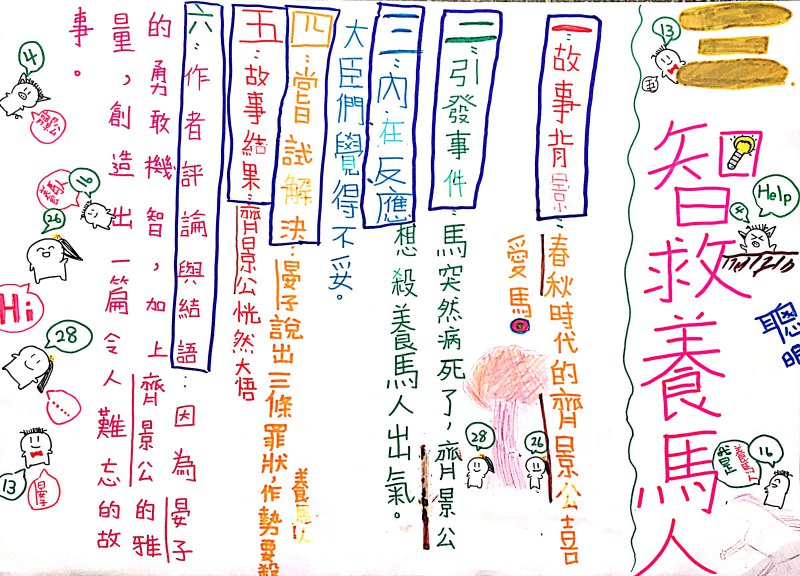 三
智救養馬人
聰明
Help
4
13
五
16
我是養馬人
一:故事背景:春秋時代的齊景公喜
愛馬
28
26
二:引發事件:馬突然病死了,齊景公
三:內在反應想殺養馬人出氣。
大臣們覺得不妥。
四:嘗試解決:晏子說出三條罪狀,作勢要殺
養馬人
五:故事結果:齊景公恍然大悟
六:作者評論與結語:因為晏子
的勇敢機智,加上齊景公的雅
量,創造出一篇令人難忘的故
事。
4
16
26
Hi
28
......
13
晏子